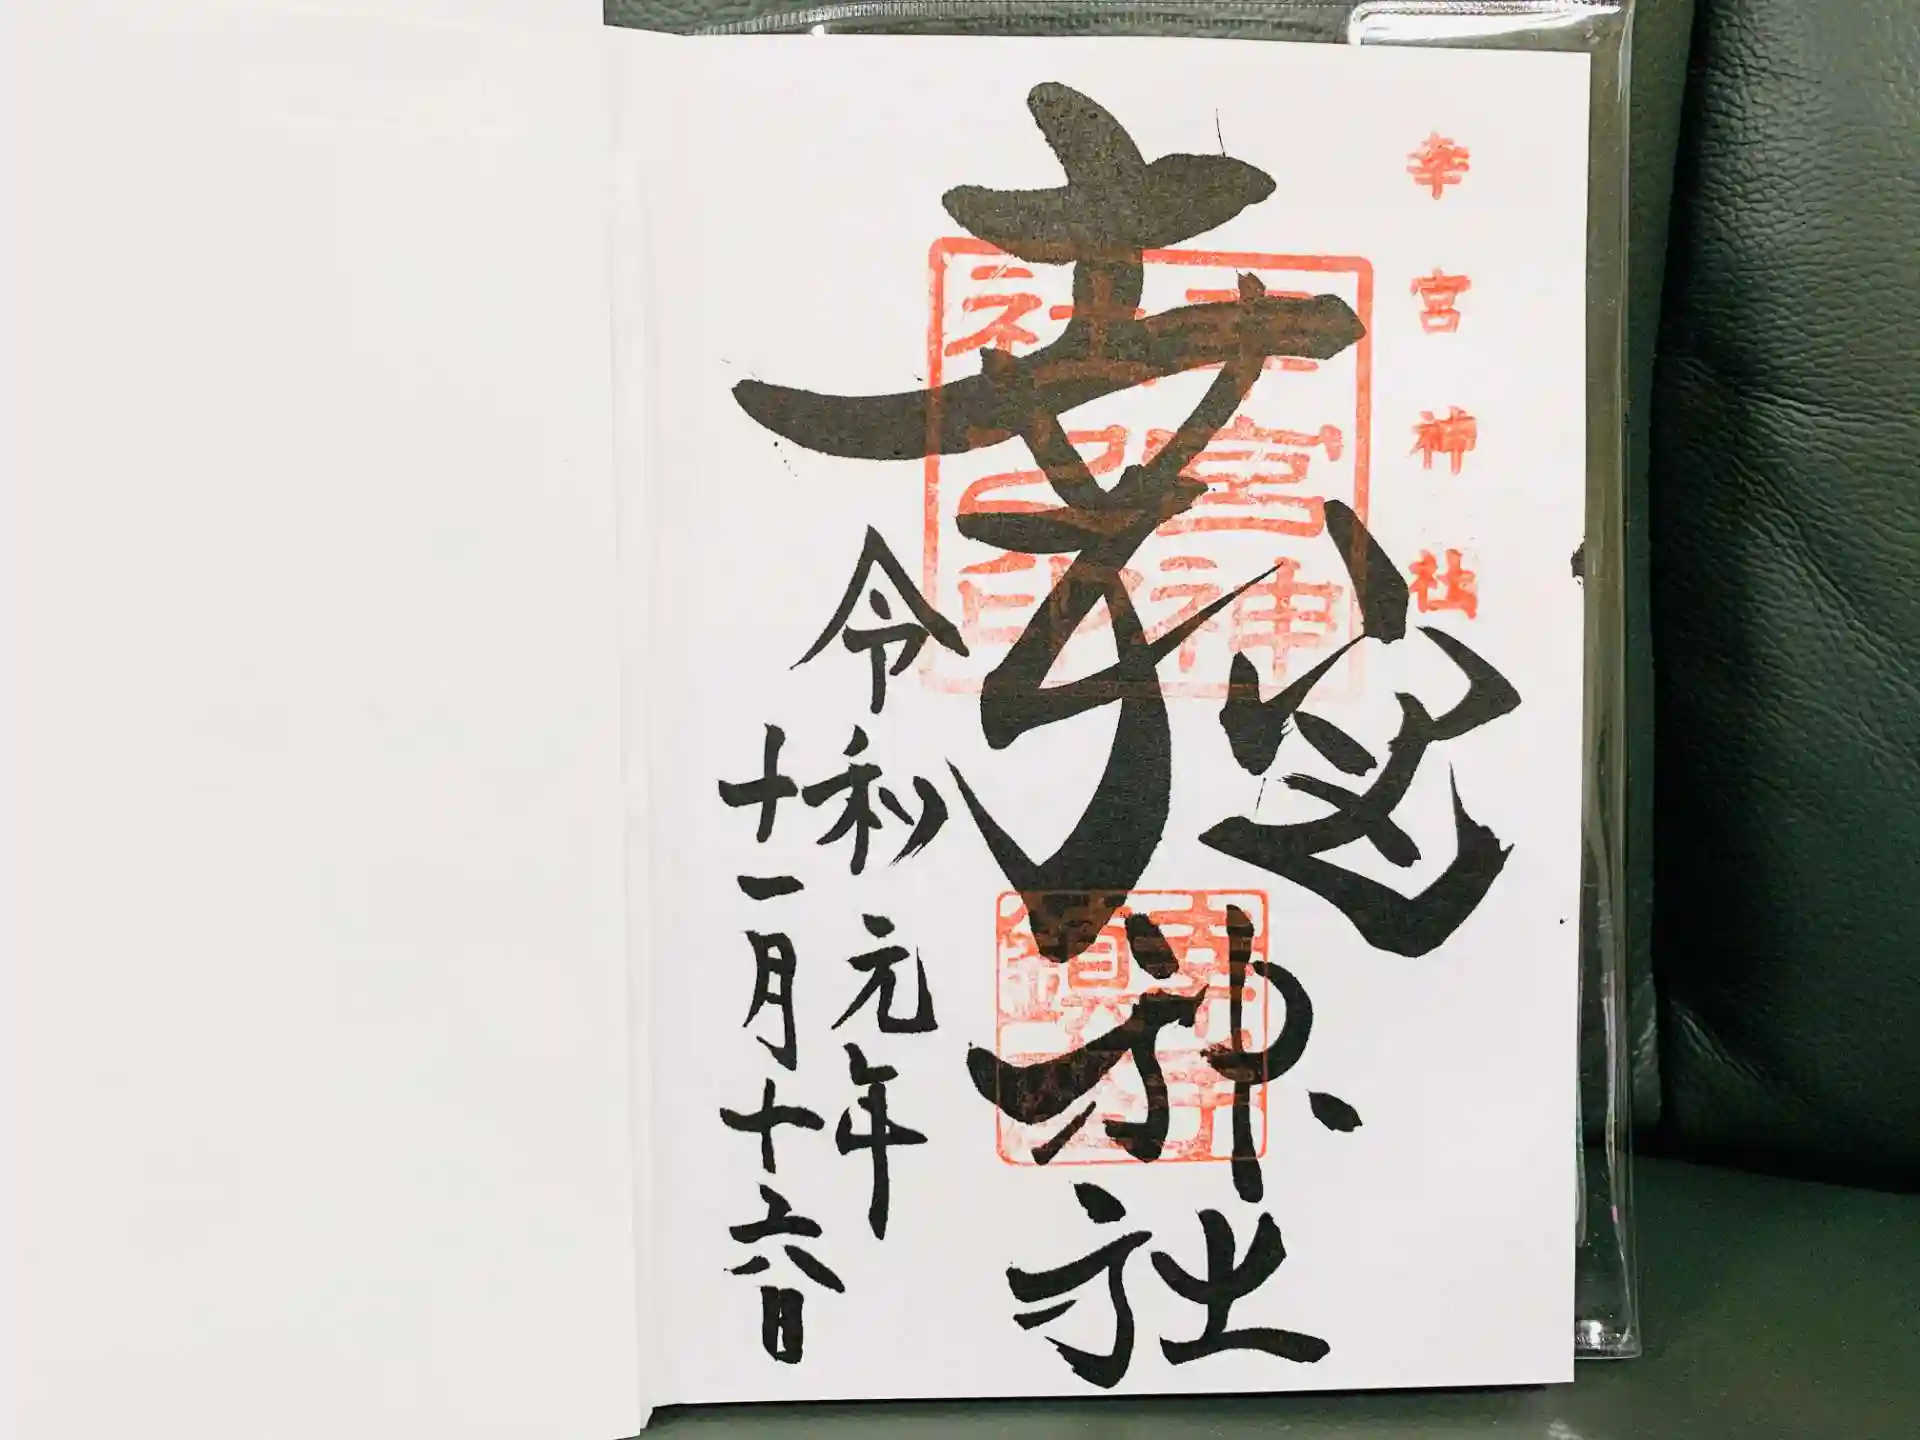 幸宮神社
幸宮神社
幸宮神社之印
令和元年
十一月十六日